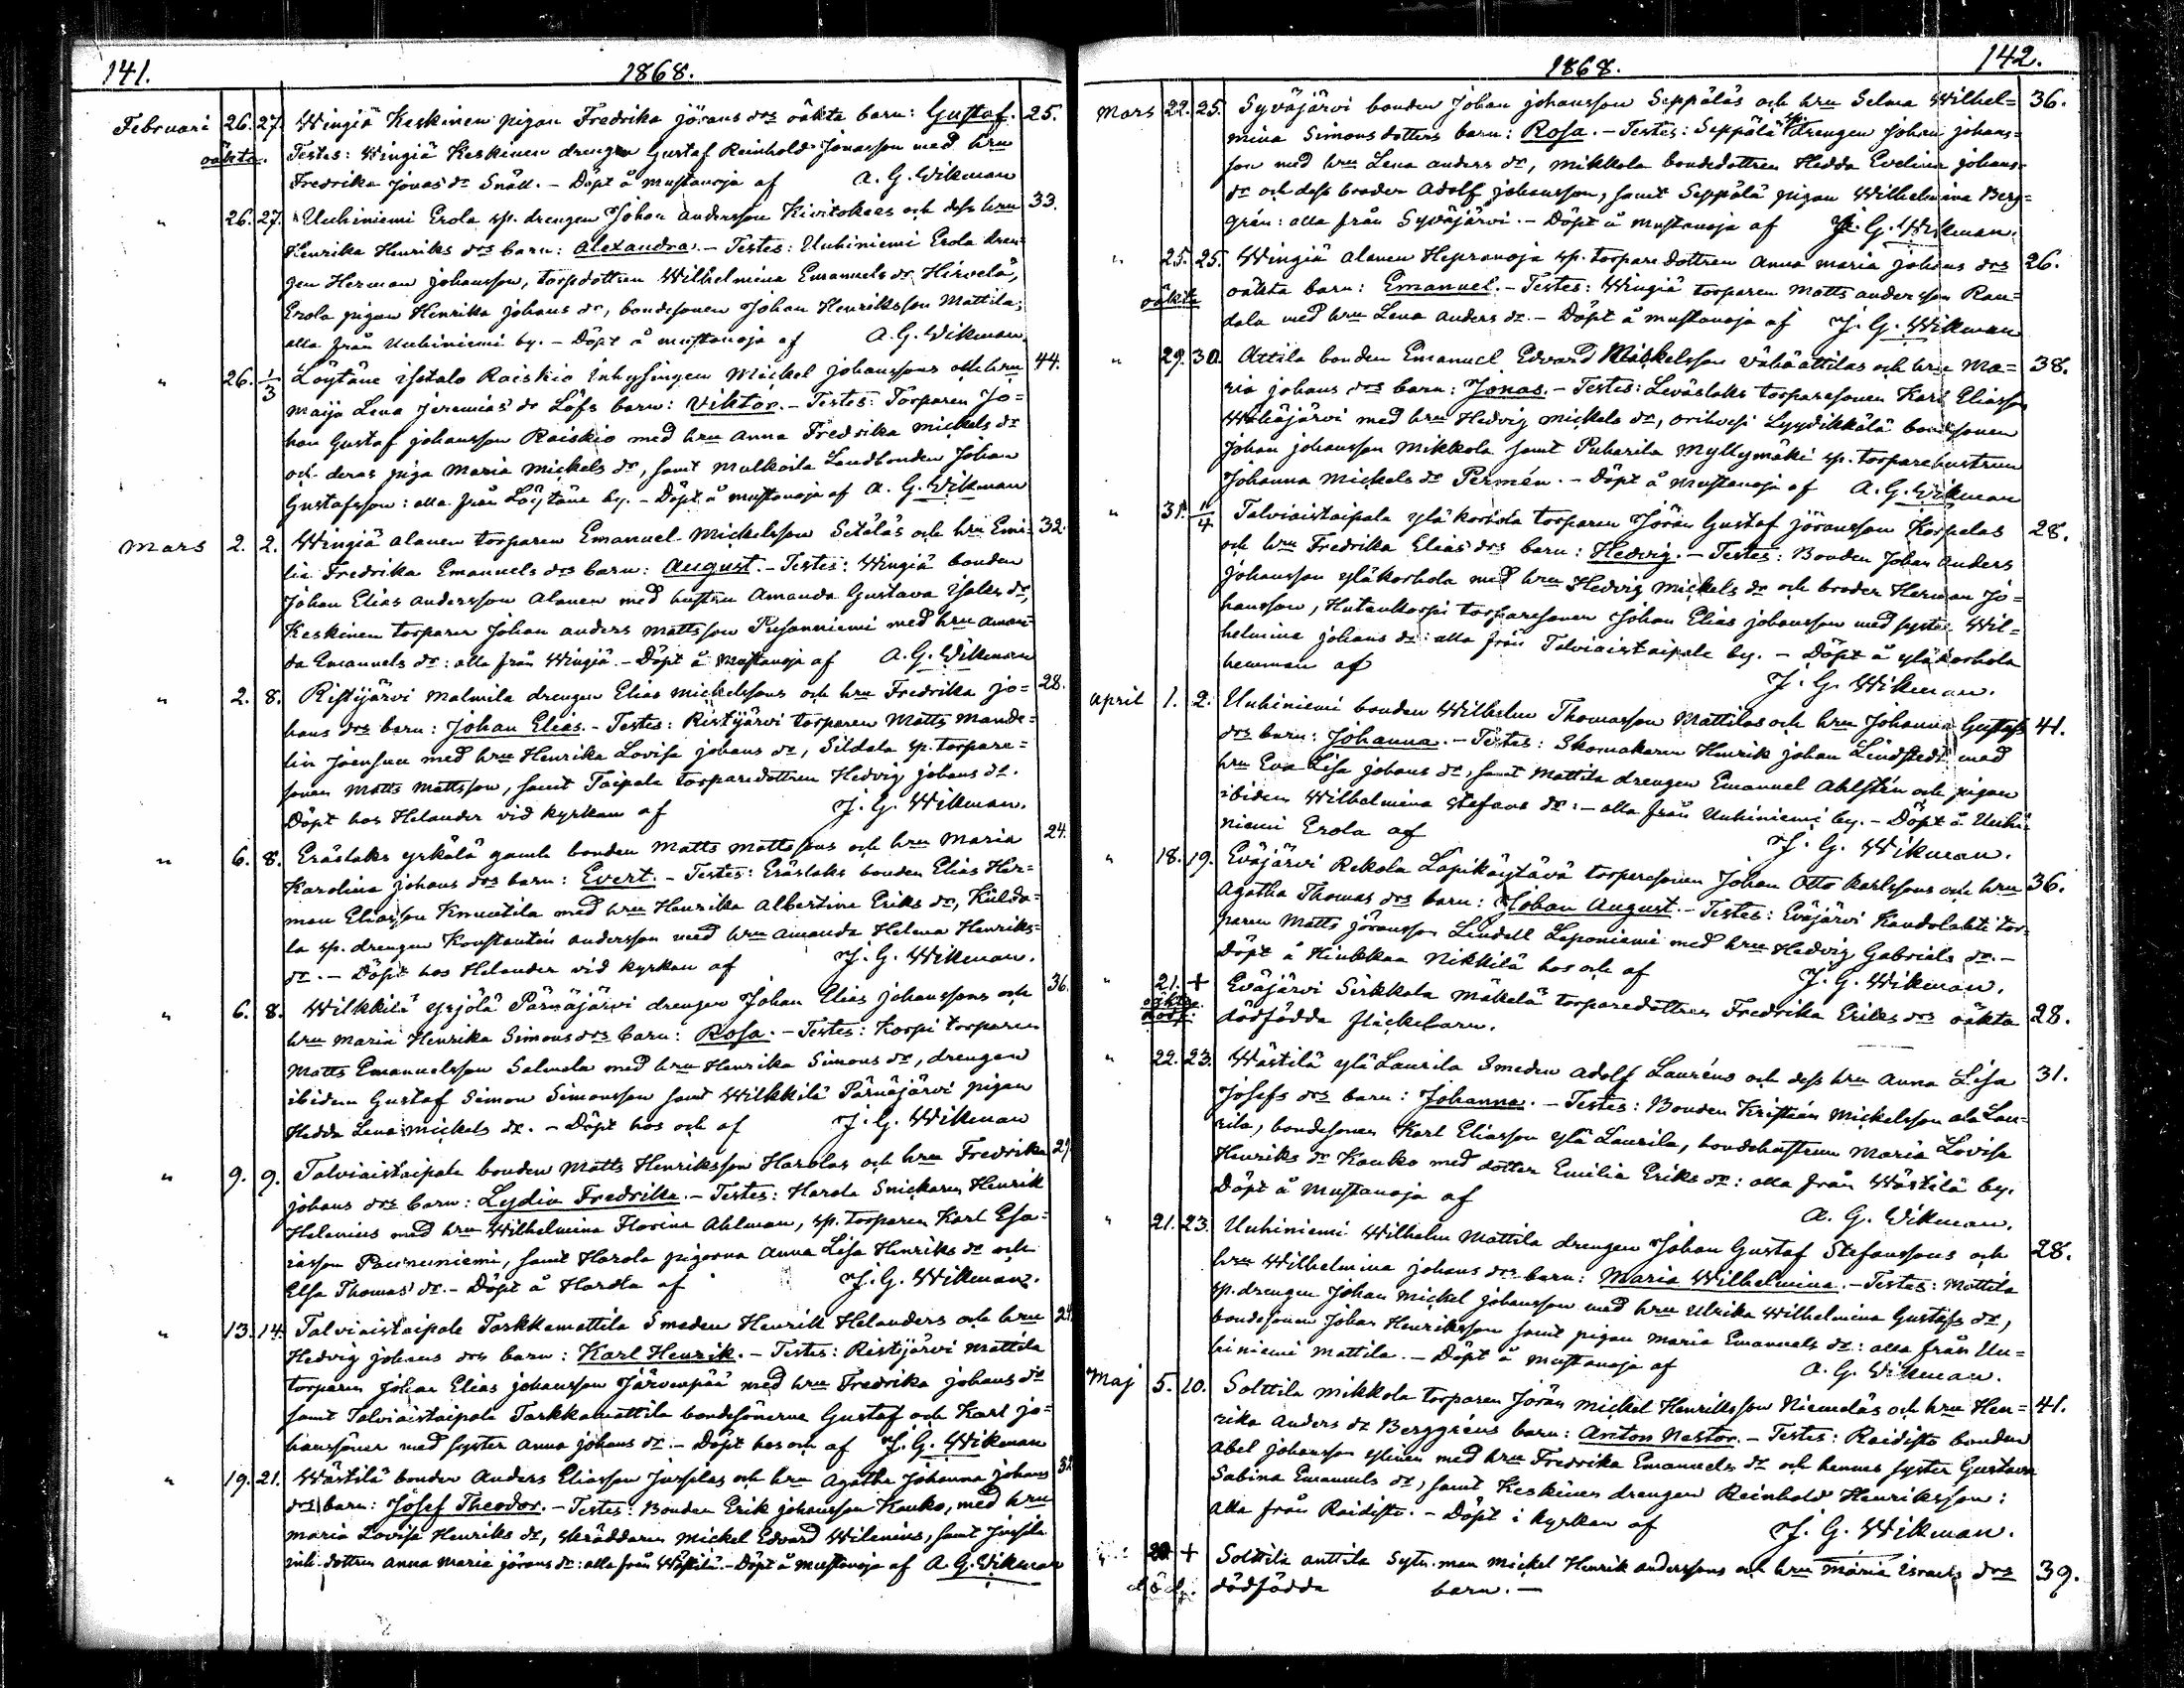 141. 1868.
Februari 26. 27. Wingiä Keskinen pigan Fredrika jörans drs oäkta barn: Gustaf. 25.
oäkta. Testes: Wingiä Keskinen drengen Gustaf Reinhold Jonasson med hru
Fredrika Jonas dr Snäll. – Döpt å Mustanoja af A. G. Wikman
" 26. 27. Uuhiniemi Erola sp. drengen Johan Andersson Kivitokees och dess hru 33.
Henrika Henriks drs barn: Alexandra. – Testes: Uuhiniemi Erola dren-
gen Herman Johansson, torpdottren Wilhelmina Emanuels dr Hirvelä,
Erola pigan Henrika Johans dr, bondesonen Johan Henriksson Mattila;
alla från Uuhiniemi by. – Döpt å Mustanoja af A. G. Wikman.
" 26. 1/3 Löytäne Isotalo Raiskio Inhysingen Mickel Johanssons och hru 44.
Maija Lena Jeremias dr Löfs barn: Viktor. – Testes: Torparen Jo=
han Gustaf Johansson Raiskio med hru Anna Fredrika Mickels dr
och deras piga Maria Mickels dr, samt Mulkoila Landbonden Johan
Gustafsson: alla från Löytäne by. – Döpt å Mustanoja af A. G. Wikman
Mars 2. 2. Wingiä Alanen torparen Emanuel Mickelsson Setäläs och hru Emi= 32.
lia Fredrika Emanuels drs barn: August. – Testes: Wingiä bonden
Johan Elias Andersson Alanen med hustru Amanda Gustava Isaks dr,
Keskinen torparen Johan Anders Mattsson Pusanniemi med hru Aman-
da Emanuels dr: alla från Wingiä. – Döpt å Mustanoja af A. G. Wikman
" 2. 8. Ristijärvi Malmila drengen Elias Mickelssons och hru Fredrika Jo= 28.
hans drs barn: Johan Elias. – Testes: Ristijärvi torparen Matts Mande=
lin Joensuu med hru Henrika Lovisa Johans dr, Sildala sp. torpare=
sonen Matts Mattsson, samt Taipale torparedottren Hedvig Johans dr.
Döpt hos Helander vid kyrkan af J. G. Wikman.
" 6. 8. Eräslaks Yrkälä gamle bonden Matts Mattssons och hru Maria 24.
Karolina Johans drs barn: Evert. – Testes: Eräslaks bonden Elias Her=
man Eliasson Knuutila med hru Henrika Albertina Eriks dr, Kulda=
la sp. drengen Konstantin Andersson med hru Amanda Helena Henriks=
dr. – Döpt hos Helander vid kyrkan af J. G. Wikman.
" 6. 8. Wilkkilä Yrjölä Pärnäjärvi drengen Johan Elias Johanssons och 36.
hru Maria Henrika Simons drs barn: Rosa. – Testes: Korpi torparen
Matts Emanuelsson Salmela med hru Henrika Simons dr, drengen
ibidem Gustaf Simon Simonsson samt Wilkkilä Pärnäjärvi pigan
Hedda Lena Mickels dr. – Döpt hos och af J. G. Wikman
" 9. 9. Talviaistaipale bonden Matts Henriksson Harolas och hru Fredrika 29.
Johans drs barn: Lydia Fredrika. – Testes: Harola Snickaren Henrik
Helenius med hru Wilhelmina Florina Ahlman, sp. torparen Karl Esa=
iasson Paununiemi, samt Harola pigorna Anna Lisa Henriks dr och
Elsa Thomas dr. – Döpt å Harola af J. G. Wikman.
" 13. 14. Talviaistaipale Tarkkamattila Smeden Henrik Helanders och hru 24.
Hedvig Johans drs barn: Karl Henrik. – Testes: Ristijärvi Mattila
torparen Johan Elias Johansson Järvenpää med hru Fredrika Johans dr
samt Talviaistaipale Tarkkamattila bondesönerne Gustaf och Karl Jo=
hanssöner med syster Anna Johans dr. – Döpt hos och af J. G. Wikman
" 19. 21. Wästilä bonden Anders Eliasson Jussilas och hru Agatha Johanna Johans 32
drs barn: Josef Theodor. – Testes: Bonden Erik Johansson Kauko, med hru
Maria Lovisa Henriks dr, skräddaren Mickel Edvard Wilenius, samt Jussila
inh. dottren Anna Maria Jörans dr: alla från Wästilä. – Döpt å Mustanoja af A. G. Wikman
1868. 142.
Mars 22. 25. Syväjärvi bonden Johan Johansson Seppäläs och hru Selma Wilhel= 36.
mina Simons dotters barn: Rosa. – Testes: Seppälä sp. drengen Johan Johans=
son med hru Lena Anders dr, Mikkola bondedottren Hedda Evelina Johans=
dr och dess broder Adolf Johansson, samt Seppälä pigan Wilhelmina Berg=
grén: alla från Syväjärvi. – Döpt å Mustanoja af J. G. Wikman.
" 25. 25. Wingiä Alanen Hepranoja sp. torparedottren Anna Maria Johans drs 26.
oäkta oäkta barn: Emanuel. – Testes: Wingiä torparen Matts Andersson Ran=
dala med hru Lena Anders dr. – Döpt å Mustanoja af J. G. Wikman
" 29. 30. Attila bonden Emanuel Edvard Mickelsson Vähäattilas och hru Ma= 38.
ria Johans drs barn: Jonas. – Testes: Leväslaks torparesonen Karl Eliasson
Wähäjärvi med hru Hedvig Mickels dr, Orihvesi Lyydikkälä bondsonen
Johan Johansson Mikkola samt Puharila Myllymäki sp. torparehustrun
Johanna Mickels dr Permén. – Döpt å Mustanoja af A. G. Wikman
" 31. 11/4 Talviaistaipale Yläkorhola torparen Jöran Gustaf Jöransson Korpelas 28.
och hru Fredrika Elias drs barn: Hedvig. – Testes: Bonden Johan Anders
Johansson Yläkorhola med hru Hedvig Mickels dr och broder Herman Jo=
hansson, Hutankorpi torparesonen Johan Elias Johansson med syster Wil=
helmina Johans dr: alla från Talviaistaipale by. – Döpt å Yläkorhola
hemman af J. G. Wikman.
April 1. 2. Uuhiniemi bonden Wilhelm Thomasson Mattilas och hru Johanna Gustafs 41.
drs barn: Johanna. – Testes: Skomakaren Henrik Johan Lindstedt med
hru Eva Lisa Johans dr, samt Mattila drengen Emanuel Ahlstén och pigan
ibidem Wilhelmina Stefans dr: – alla från Uuhiniemi by. – Döpt å Uuhi=
niemi Erola af J. G. Wikman.
" 18. 19. Eväjärvi Rekola Läpikäytävä torparesonen Johan Otto Karlssons och hru 36.
Agatha Thomas drs barn: Johan August. – Testes: Eväjärvi Kandolahti tor=
paren Matts Jöransson Lindell Leponiemi med hru Hedvig Gabriels dr. –
Döpt å Hiukkaa Nikkilä hos och af J. G. Wikman.
" 21. + Eväjärvi Sirkkala Mäkelä torparedottren Fredrika Eriks drs oäkta 28.
oäkta dödf. dödfödda flickebarn.
" 22. 23. Wästilä Ylä Laurila Smeden Adolf Lauréns och dess hru Anna Lisa 31.
Josefs drs barn: Johanna. – Testes: Bonden Kristian Mickelsson Ala Lau=
rila, bondesonen Karl Eliasson Ylä Laurila, bondehustrun Maria Lovisa
Henriks dr Kauko med dotter Emilia Eriks dr: alla från Wästilä by.
Döpt å Mustanoja af A. G. Wikman.
" 21. 23. Uuhiniemi Wilhelm Mattila drengen Johan Gustaf Stefanssons och 28.
hru Wilhelmina Johans drs barn: Maria Wilhelmina. – Testes: Mattila
sp. drengen Johan Mickel Johansson med hru Ulrika Wilhelmina Gustafs dr,
bondesonen Johan Henriksson samt pigan Maria Emanuels dr: alla från Uu=
hiniemi Mattila. – Döpt å Mustanoja af A. G. Wikman.
Maj 5. 10. Solttila Mikkola torparen Jöran Mickel Henriksson Niemeläs och hru Hen= 41.
rika Anders dr Berggréns barn: Anton Nestor. – Testes: Raidisto bonden
Abel Johansson Ylinen med hru Fredrika Emanuels dr och hennes syster Gustava
Sabina Emanuels dr, samt Keskinen drengen Reinhold Henriksson:
alla från Raidisto. – Döpt i kyrkan af J. G. Wikman.
" 20. + Solttila Anttila Sytn. man Mickel Henrik Anderssons och hru Maria Israels drs 39.
dödf. dödfödda barn. –